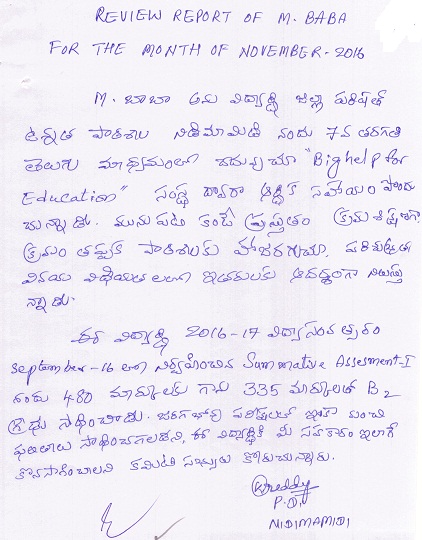 REVIEW REPORT OF M. BABA
FOR THE MONTH OF NOVEMBER - 2016
M. బాబా అను విద్యార్థి జిల్లా పరిషత్
ఉన్నత పాఠశాల నిడిమామిడి నందు 7వ తరగతి
తెలుగు మాధ్యమంలో చదువుచూ "Big help for
Education" సంస్థ ద్వారా ఆర్థిక సహాయం పొందు
చున్నాడు. మునుపటి కంటే ప్రస్తుతం క్రమశిక్షణగా
క్రమం తప్పక పాఠశాలకు హాజరగుచూ, పరిశుభ్రత
వినయ విధేయతలలో ఇతరులకు ఆదర్శంగా నిలుస్తు
న్నాడు.
ఈ విద్యార్థి 2016-17 విద్యాసంవత్సరం
September-16 లో నిర్వహించిన Summative Assesment-I
నందు 480 మార్కులకు గాను 335 మార్కులతో B2
గ్రేడు సాధించాడు. జరగబోవు పరీక్షలలో ఇంకా మంచి
ఫలితాలు సాధించగలడని, ఈ విద్యార్థికి మీ సహకారం ఇలాగే
కొనసాగించాలని కమిటీ సభ్యులు కోరుచున్నారు.
P.O.V
NIDIMAMIDI